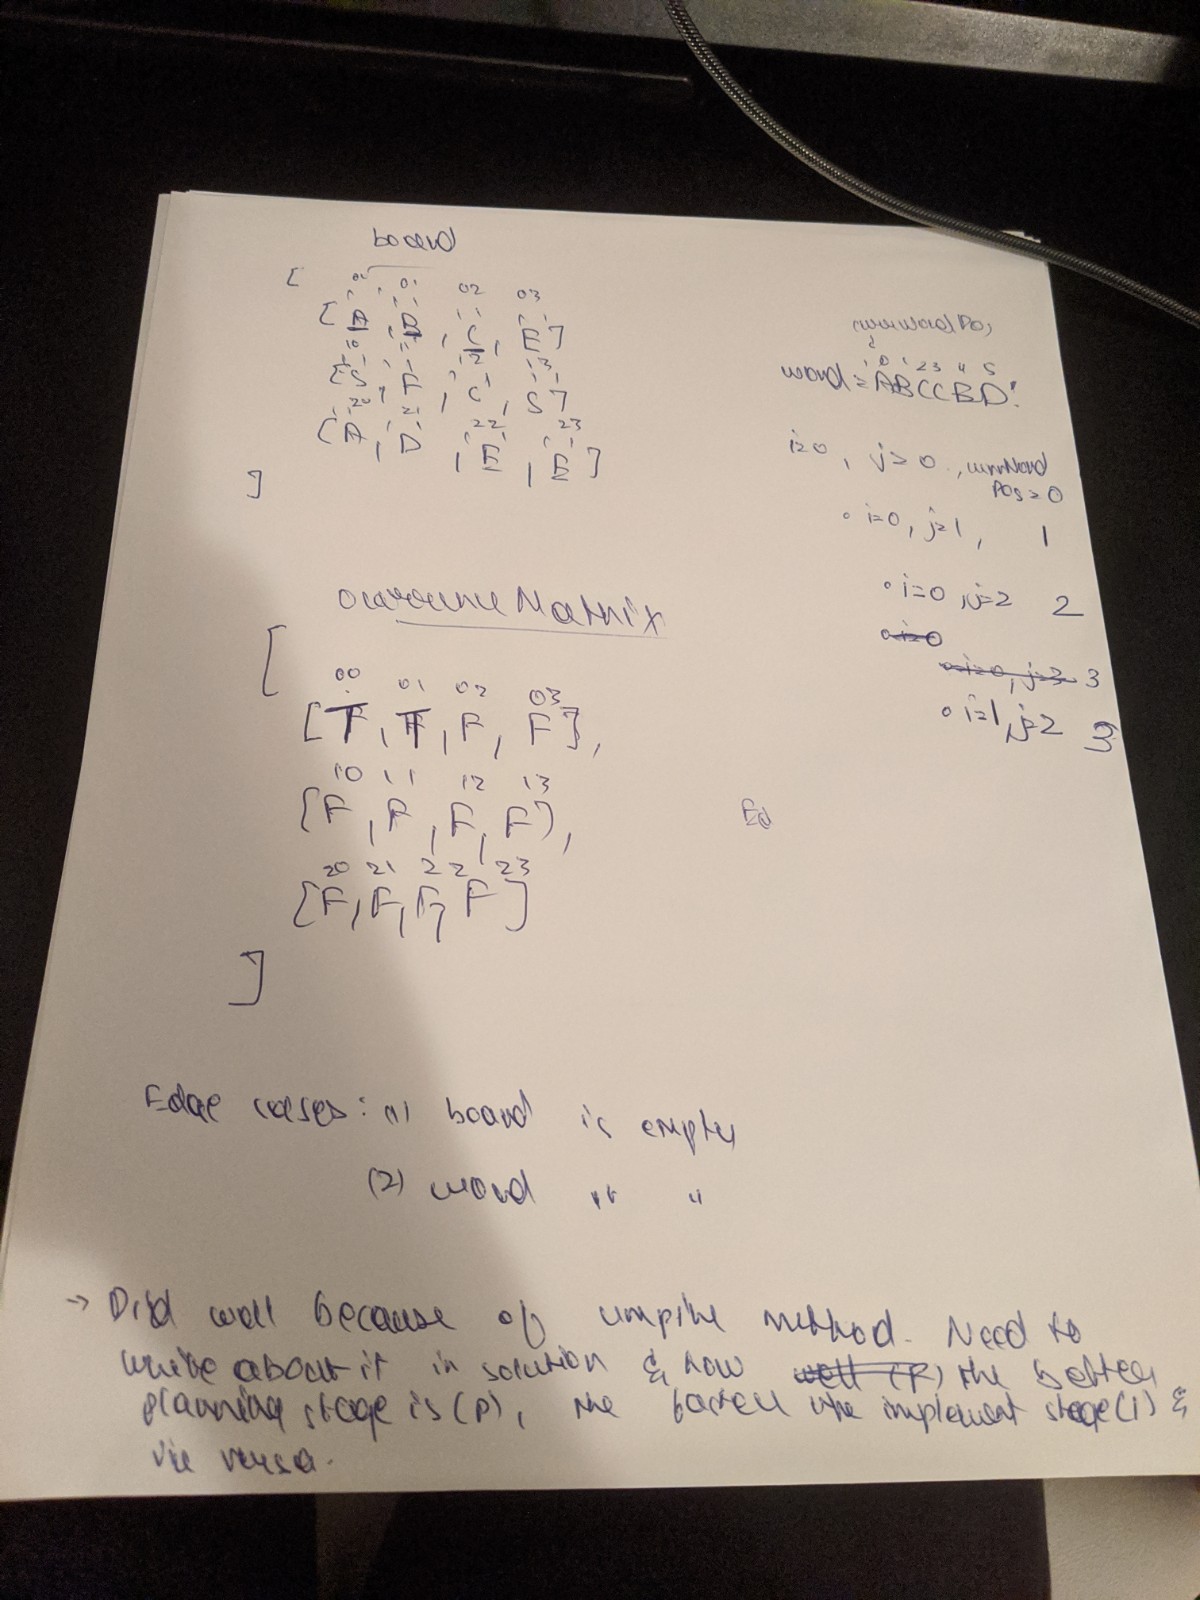 board
[
00 01 02 03
['A', 'B', 'C', 'E']
10 11 12 13
['S', 'F', 'C', 'S']
20 21 22 23
['A', 'D', 'E', 'E']
]
currWordPos
0 1 2 3 4 5
word = 'ABCCBD'
i=0, j=0, currWord
Pos=0
i=0, j=1, 1
i=0, j=2 2
i=0
i=0, j=3 3
i=1, j=2 3
Matrix
[
00 01 02 03
[T, T, F, F],
10 11 12 13
[F, F, F, F],
20 21 22 23
[F, F, F, F]
]
Ed
Edge cases: (1) board is empty
(2) word " "
→ Did well because of umpire method. Need to
write about it in solution & how well (P) the better
planning stage is (P), the faster the implement stage (i) &
vie versa.